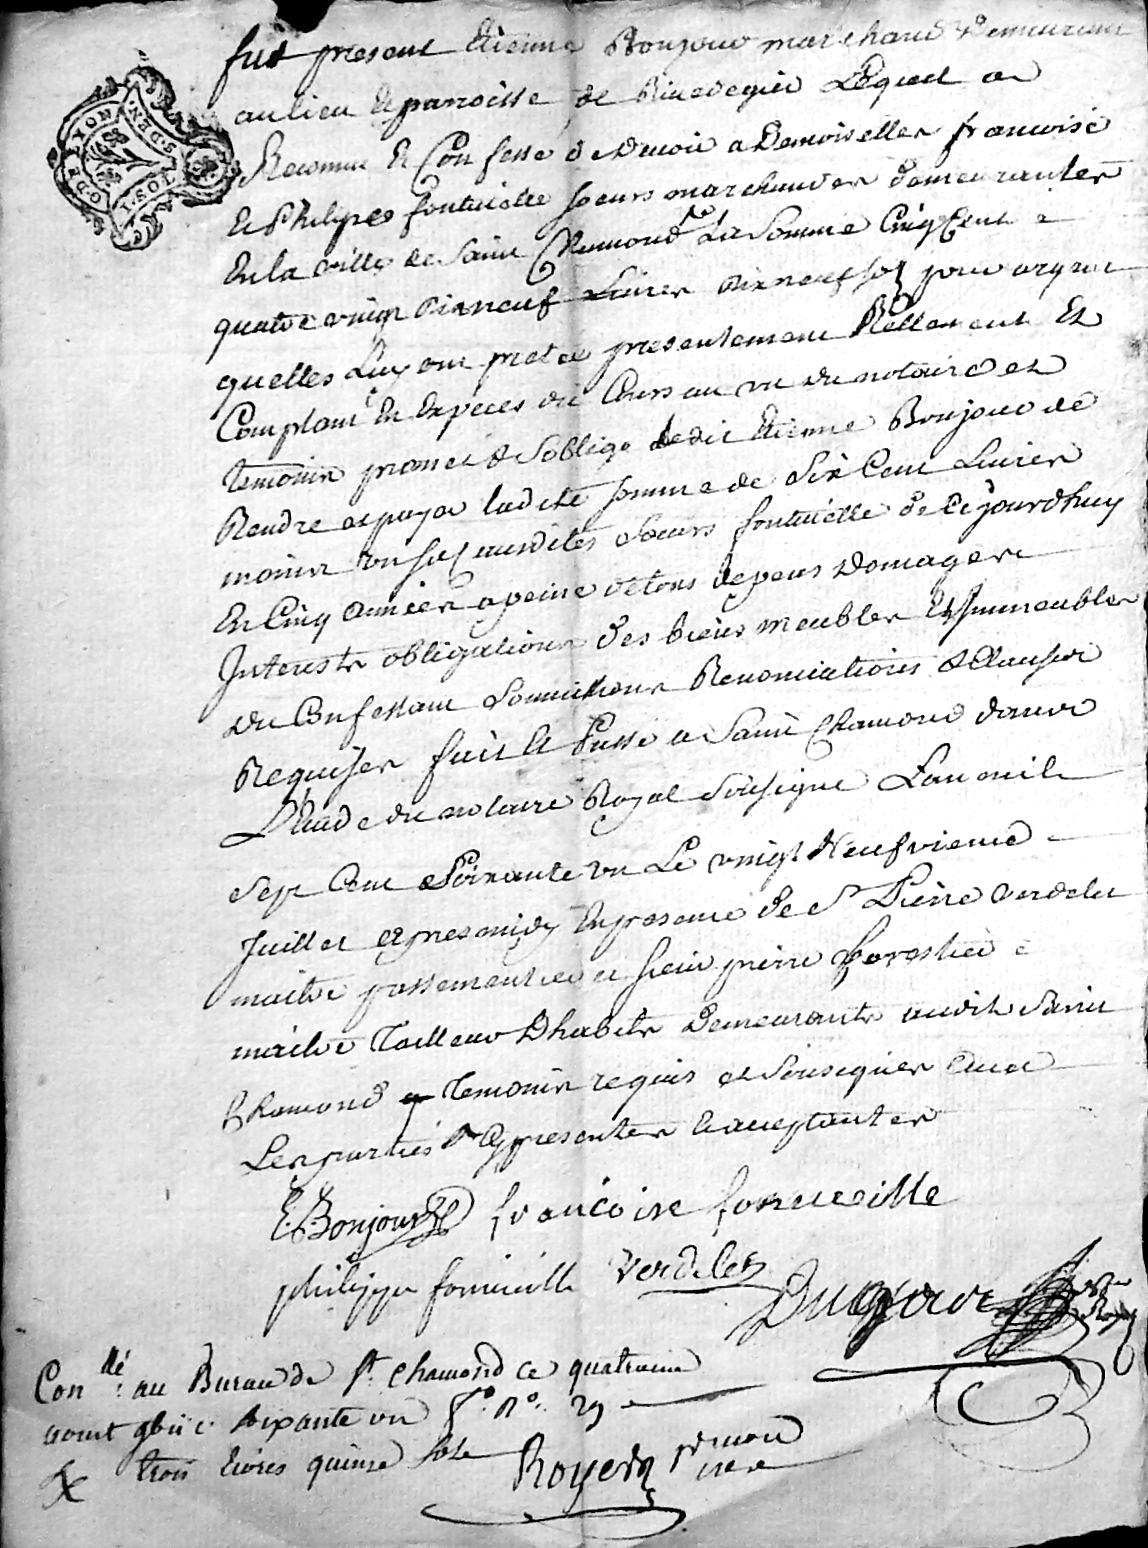 GEN. DE LYON
1. SOL
fut present Etienne Bonjour marchand demeurant
au lieu et parroisse de Rivedegier Lequel a
Reconnu et Confesse devoir a Demoiselles francoise
et Philipes fontvielle soeurs marchandes demeurantes
En la ville de Saint Chamond La Somme Cinq Cent
quatre vingt dix neuf Livres dix neuf sol pour argent
quelles Luy ont preté presentement Rellement Et
Comptant En Especes du Cours au vu du notaire et
temoins promet & soblige ledit Etienne Bonjour de
Rendre et payer ladite somme de Six Cent Livres
moins un sol ausdites Soeurs fontvielle de Ce jourdhuy
En Cinq années a peine de tous depens Domages
Interests obligations des biens meubles Et Immeubles
du Confessant Soumissions Renonciations & Clauses
Requises fait et Passé a Saint Chamond dans
L'Etude du notaire Royal Soussigné L'an mil
Sept Cent Soixante un Le vingt Neufvieme
Juillet apres midy En presence de Sr Pierre Verdelet
maitre passementier et sieur pierre Forestier
maitre Tailleur D'habits Demeurants audit Saint
Chamond Temoins requis et Soussignes avec
Les parties presentes et acceptantes
E. Bonjour francoise fonvieille
philippe fonvieille Verdelet
Dugaie
Conllé au Bureau de St. Chamond ce quatrieme
aout gbii c soixante un fo. Ro. 29
trois livres quinze sols
Royer